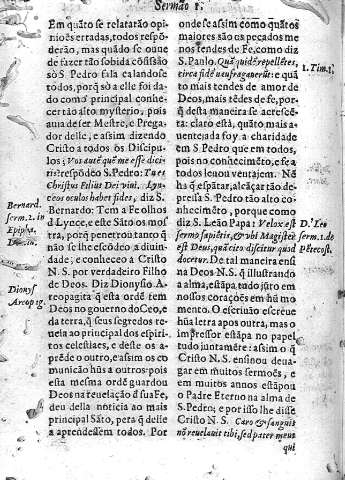 Sermão 1.
Em quãto se relatarão opi-
niões erradas, todos respõ-
derão, mas quãdo se ouue
de fazer tão subida cõfissão
sò S. Pedro fala calandose
todos, porq̃ sò a elle foi da-
do como principal conhe-
cer tão alto mysterio, pois
auia de ser Mestre, e Prega-
dor delle, e assim dizendo
Cristo a todos os Discipu-
los: Vos autẽ quẽ me esse dici-
tis? respõdeo S. Pedro: Tu es
Christus Filius Dei viui. Lyn-
ceos oculos habet fides, diz S.
Bernardo: Tem a Fe olhos
d Lynce, e este Sãto os mos-
tra, porq̃ penetrou tanto q̃
não se lhe escõdeo a diuin-
dade, e conheceo a Cristo
N. S. por verdadeiro Filho
de Deos. Diz Dionysio A-
reopagita q̃ esta ordẽ tem
Deos no gouerno do Ceo, e
da terra, q̃ seus segredos re-
uela ao principal dos espiri-
tos celestiaes, e deste os a-
prẽde o outro, e assim os co-
municão hũs a outros: pois
esta mesma ordẽ guardou
Deos na reuelação d sua Fe,
deu della noticia ao mais
principal Sãto, pera q̃ delle
a aprendessem todos. Por
Bernard.
serm. 2. in
Epipha.
Domin.
Dionys
Areop ig.
onde se assim como quãtos
maiores são os peçados me
nos tendes de Fe, como diz
S. Paulo. Quã quidẽ repellẽtes,
circa fidẽ naufragauerũt: e quã
to mais tendes de amor de
Deos, mais tẽdes de fe, por-
q̃ desta maneira se acrescẽ-
ta: claro està, quãto mais a-
uentejada foy a charidade
em S. Pedro que em todos,
pois no conhecimẽto, e fe a
todos leuou ventajem. Nẽ
ha q̃ espãtar, alcãçar tão de-
pressa S. Pedro tão alto co-
nhecimẽto, porque como
diz S. Leão Papa: Velox est
sermo sapiẽtis, et vbi Magister
est Deus, quã cito discitur quod
docetur. De tal maneira ensi
na Deos N. S. q̃ illustrando
a alma, estãpa tudo jsto em
nossos corações em hũ mo
mento. O escriuão escreue
hũa letra apos outra, mas o
impressor estãpa no papel
tudo juntamẽte: assim o q̃
Cristo N. S. ensinou deua-
gar em muitos sermões, e
em muitos annes estãpou
o Padre Eterno na alma de
S. Pedro; e por isso lhe disse
Cristo N. S. Caro et sanguis
nõ reuelauit tibi, sed pater meus
qui
1. Tim. 1.
D. Leo
serm. 1. de
Pẽtecost.